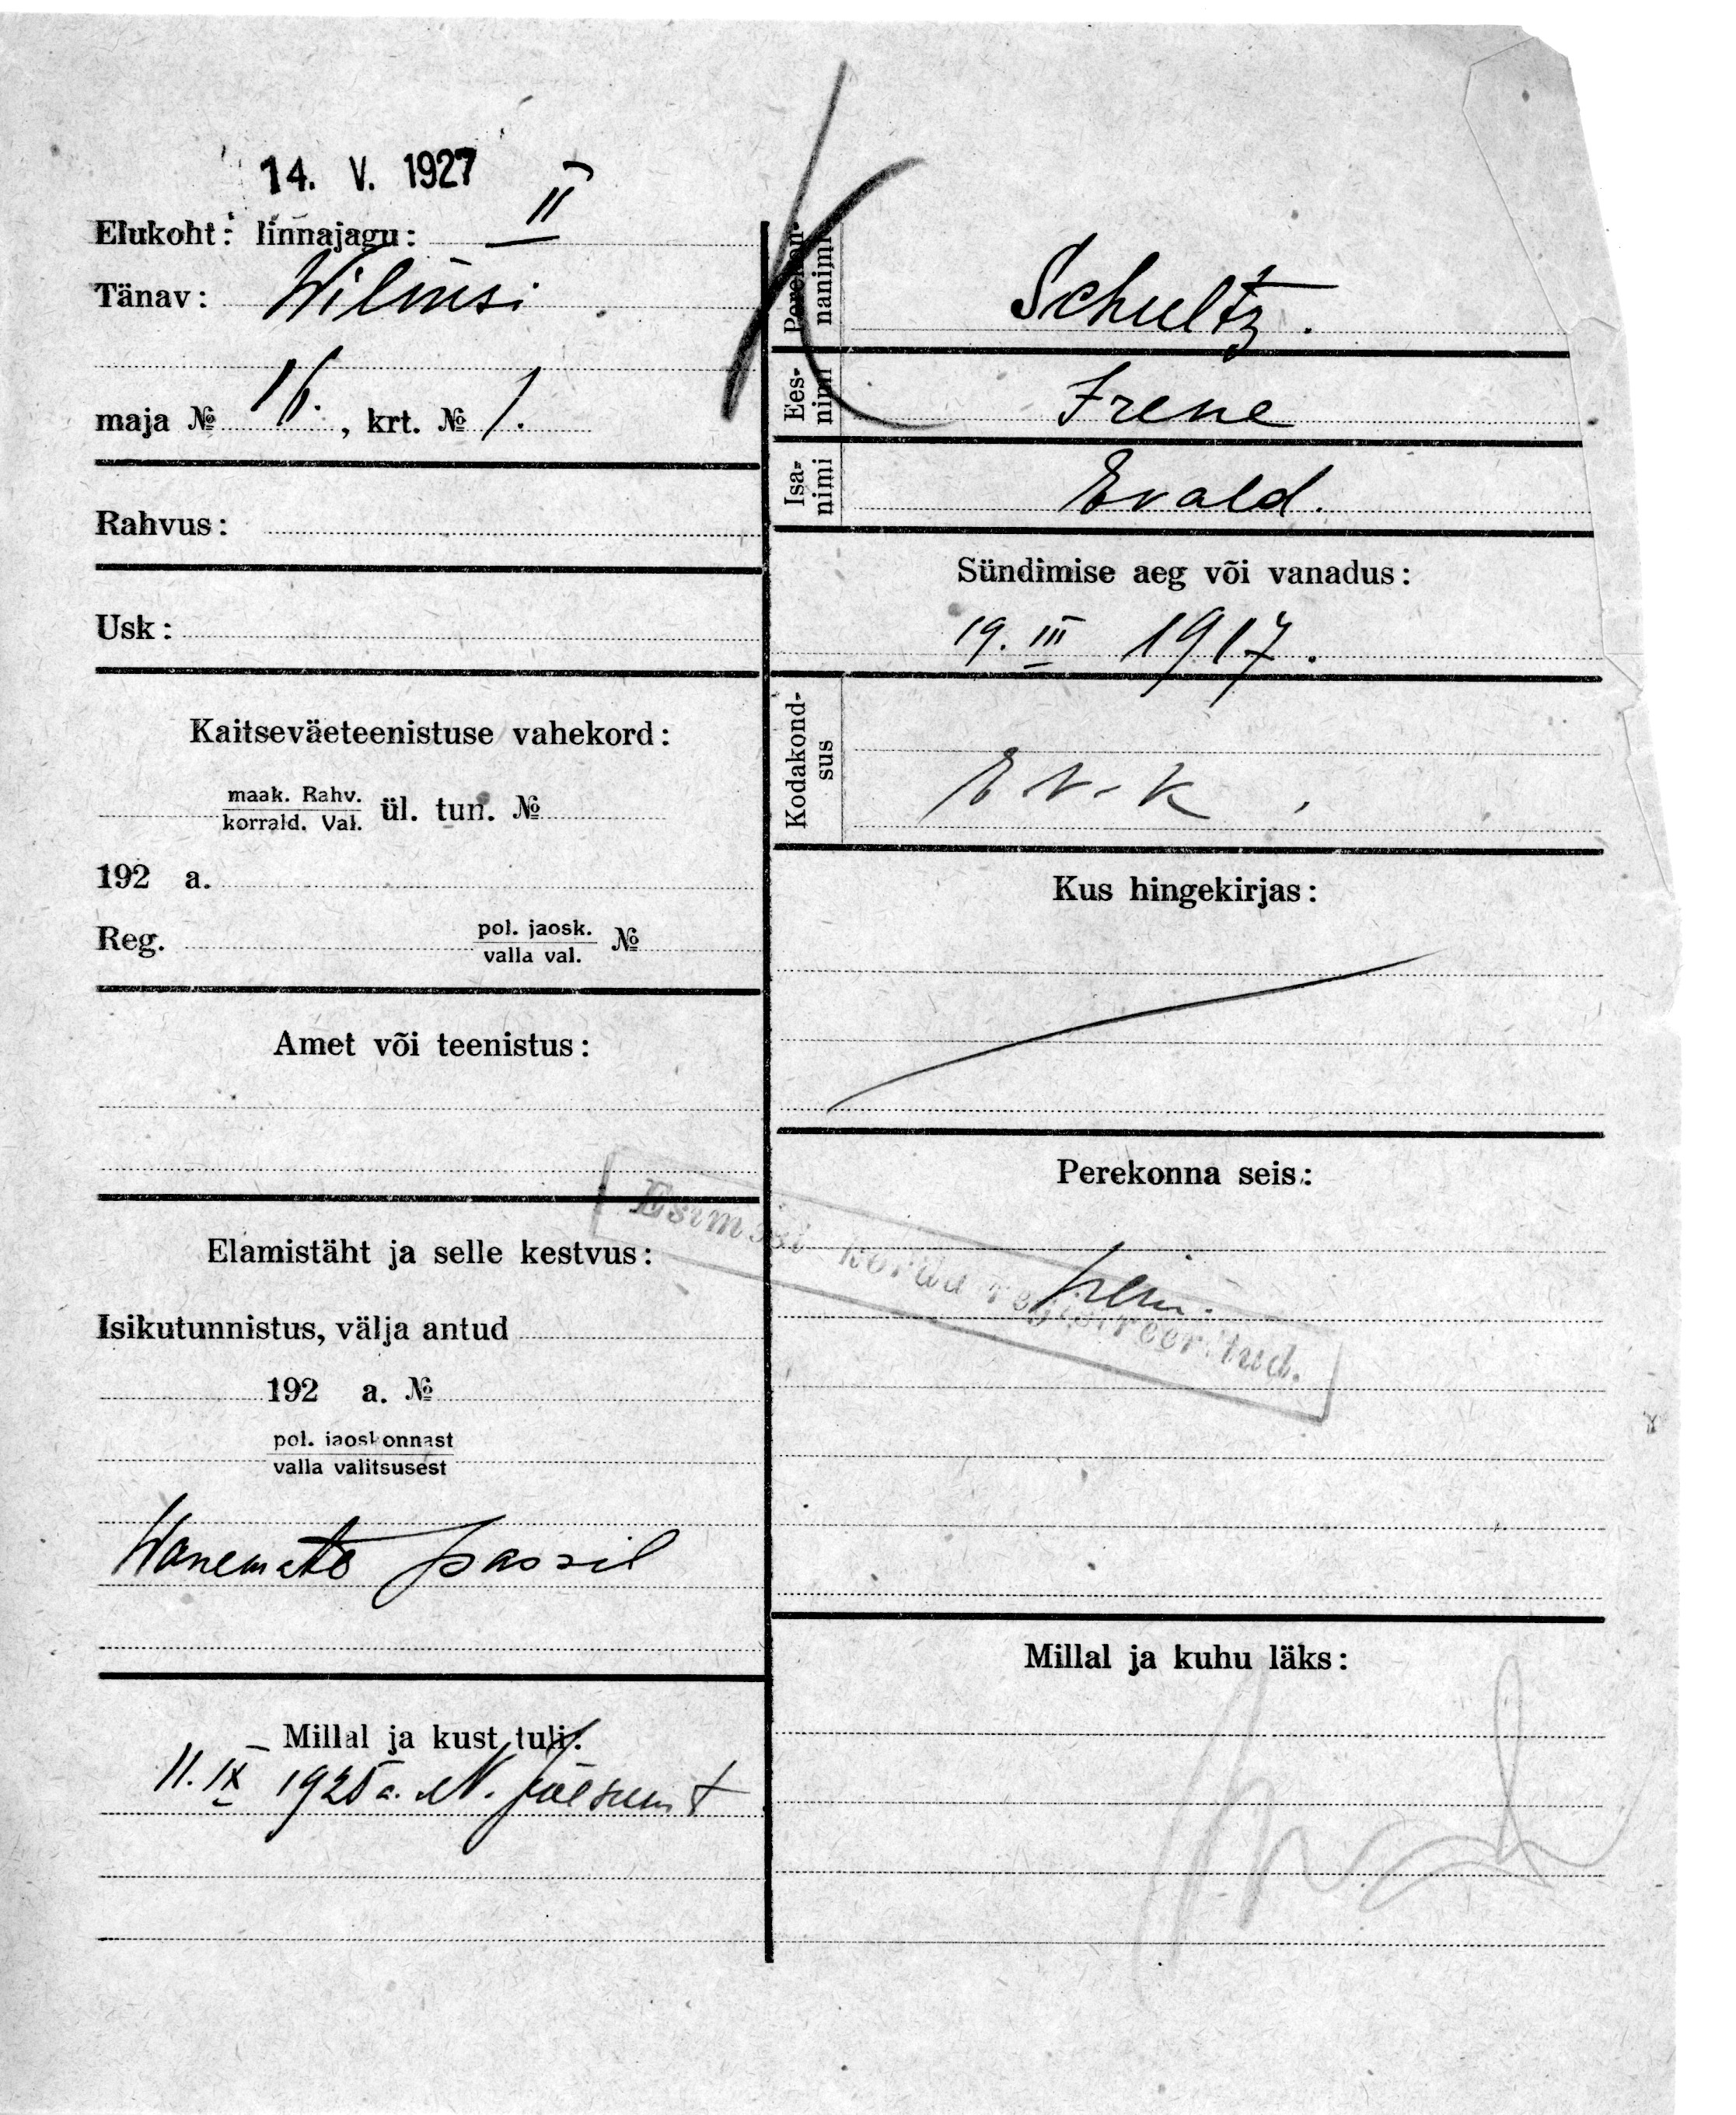 14. V. 1927
Elukoht: linnajagu: II
Tänav: Wilmsi
maja № 16., krt. № 1.
Rahvus:
Usk:
Kaitseväeteenistuse vahekord:
maak. Rahv.
korrald. Val. ül. tun. №
192 a.
Reg. pol. jaosk.
valla val. №
Amet või teenistus:
Elamistäht ja selle kestvus:
Isikutunnistus, välja antud
192 a. №
pol. jaoskonnast
valla valitsusest
Wanemate passil
Millal ja kust tuli:
11. IX 1925 a. N.
Perekonnanimi Schultz.
Eesnimi Irene
Isanimi Evald.
Sündimise aeg või vanadus:
19. III 1917.
Kodakondsus
Kus hingekirjas:
Perekonna seis:
Esimest korda registreeritud.
Millal ja kuhu läks: